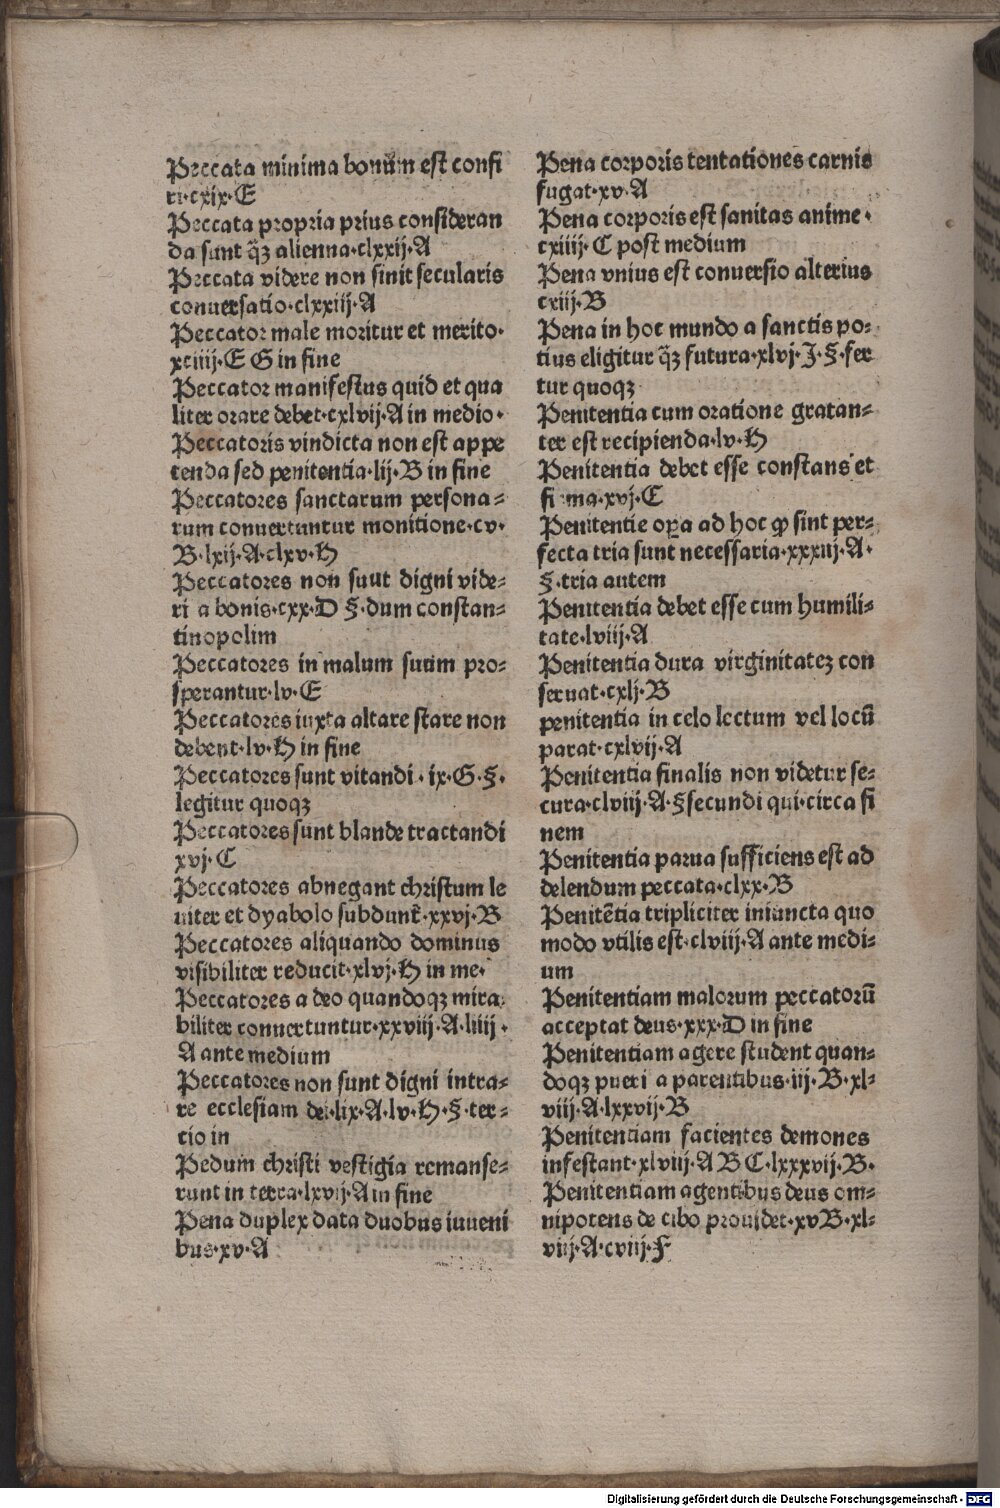 Peccata minima bonum est confi
ri·cxix·E
Peccata propria prius consideran
da sunt q̄ꝫ alienna·clxxij·A
Peccata videre non sinit secularis
conuersatio·clxxiij·A
Peccator male moritur et merito·
xciiij·E G in fine
Peccator manifestus quid et qua
liter orare debet·cxlvij·A in medio·
Peccatoris vindicta non est appe
tenda sed penitentia·lij·B in fine
Peccatores sanctarum persona-
rum conuertuntur monitione·cv·
B·lxij·A·clxv·H
Peccatores non suut digni vide-
ri a bonis·cxx·D §·dum constan-
tinopolim
Peccatores in malum suum pro-
sperantur·lv·E
Peccatores iuxta altare stare non
debent·lv·H in fine
Peccatores sunt vitandi·ix·G·§·
legitur quoqꝫ
Peccatores sunt blande tractandi
xvj·C
Peccatores abnegant christum le
uiter et dyabolo subdunt̄·xxvj·B
Peccatores aliquando dominus
visibiliter reducit·xlvj·H in me·
Peccatores a deo quandoqꝫ mira
biliter conuertuntur·xxviij·A·liiij·
A ante medium
Peccatores non sunt digni intra-
re ecclesiam dei·lix·A·lv·H·§·ter-
cio in
Pedum christi vestigia remanse-
runt in terra·lxvij·A in fine
Pena duplex data duobus iuueni
bus·xv·A
Pena corporis tentationes carnis
fugat·xv·A
Pena corporis est sanitas anime·
cxiiij·C post medium
Pena vnius est conuersio alterius
cxiij·B
Pena in hoc mundo a sanctis po-
tius eligitur q̄ꝫ futura·xlvj·I·§·fer
tur quoqꝫ
Penitentia cum oratione gratan-
ter est recipienda·lv·H
Penitentia debet esse constans et
firma·xvj·C
Penitentie oꝑa ad hoc ꝙ sint per-
fecta tria sunt necessaria·xxxiij·A·
§·tria autem
Penitentia debet esse cum humili-
tate·lviij·A
Penitentia dura virginitateꝫ con
seruat·cxlj·B
penitentia in celo lectum vel locū
parat·cxlvij·A
Penitentia finalis non videtur se-
cura·clviij·A·§ secundi qui·circa fi
nem
Penitentia parua sufficiens est ad
delendum peccata·clxx·B
Penitētia tripliciter iniuncta quo
modo vtilis est·clviij·A ante medi-
um
Penitentiam malorum peccatorū
acceptat deus·xxx·D in fine
Penitentiam agere student quan-
doqꝫ pueri a parentibus·iij·B·xl-
viij·A·lxxvij·B
Penitentiam facientes demones
infestant·xlviij·A B C·lxxxvij·B·
Penitentiam agentibus deus om-
nipotens de cibo prouidet·xv B·xl-
viij·A·cviij·F
Digitalisierung gefördert durch die Deutsche Forschungsgemeinschaft - DFG